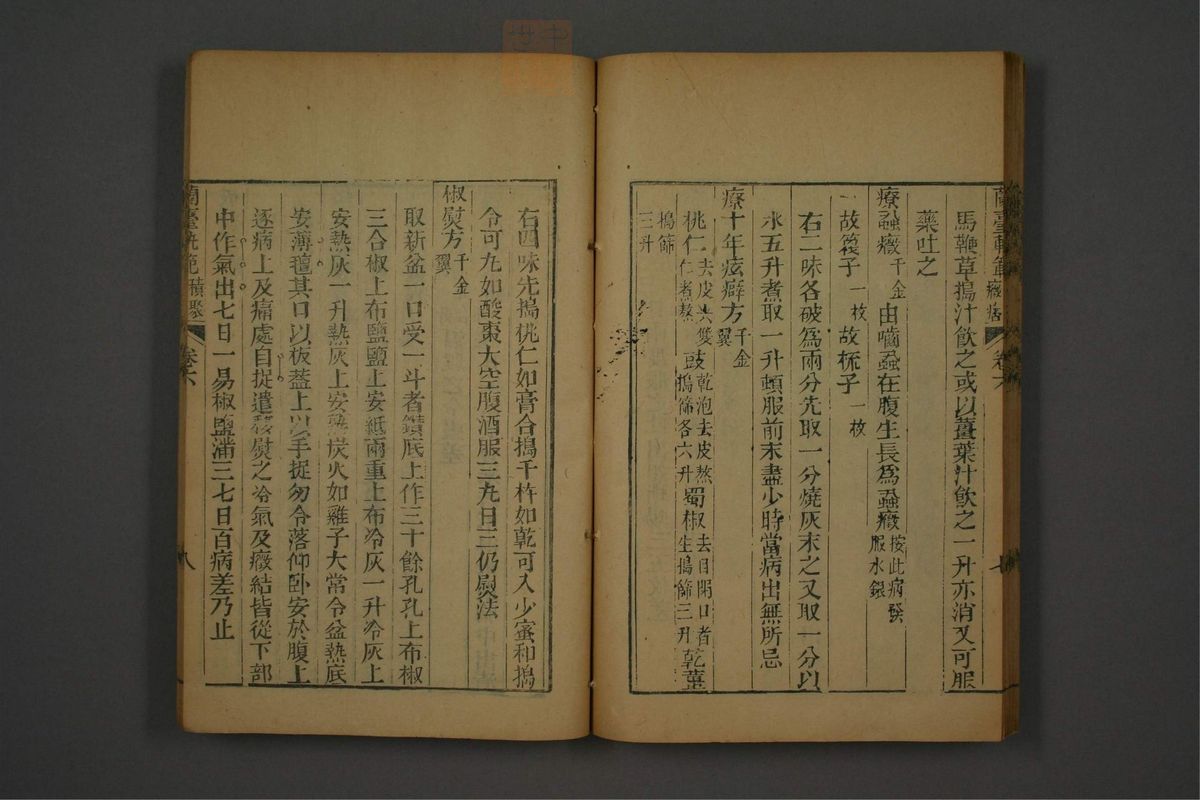 蘭臺軌範 癥瘕 卷六 七
馬鞭草搗汁飲之或以薑葉汁飲之一升亦消又可服
藥吐之
療蝨癥千金由嚙蝨在腹生長為蝨癥按此病發服水銀
故篦子一枚故梳子一枚
右二味各破為兩分先取一分燒灰末之又取一分以
水五升煮取一升頓服前末盡少時當病出無所忌
療十年痃癖方千金翼
桃仁去皮尖雙仁者熬豉乾泡去皮熬搗篩各六升蜀椒去目閉口者生搗篩三升乾薑
搗篩三升
右四味先搗桃仁如膏合搗千杵如乾可入少蜜和搗
令可丸如酸棗大空腹酒服三丸日三仍熨法
椒熨方千金翼
取新盆一口受一斗者鑽底上作三十餘孔孔上布椒
三合椒上布鹽鹽上安紙兩重上布冷灰一升冷灰上
安熱灰一升熱灰上安熟炭火如雞子大常令盆熱底
安薄氊其口以板蓋上以手捉勿令落仰卧安於腹上
逐病上及痛處自捉遣移熨之冷氣及癥結皆從下部
中作氣出七日一易椒鹽滿三七日百病差乃止
蘭臺軌範 積聚 卷六 八